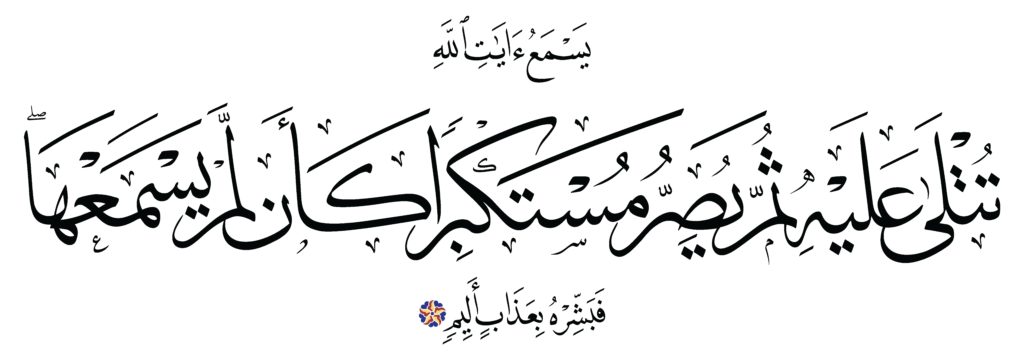 يَسْمَعُ ءَايَٰتِ ٱللَّهِ
تُتْلَىٰ عَلَيْهِ ثُمَّ يُصِرُّ مُسْتَكْبِرًا كَأَن لَّمْ يَسْمَعْهَا ۖ
فَبَشِّرْهُ بِعَذَابٍ أَلِيمٍ